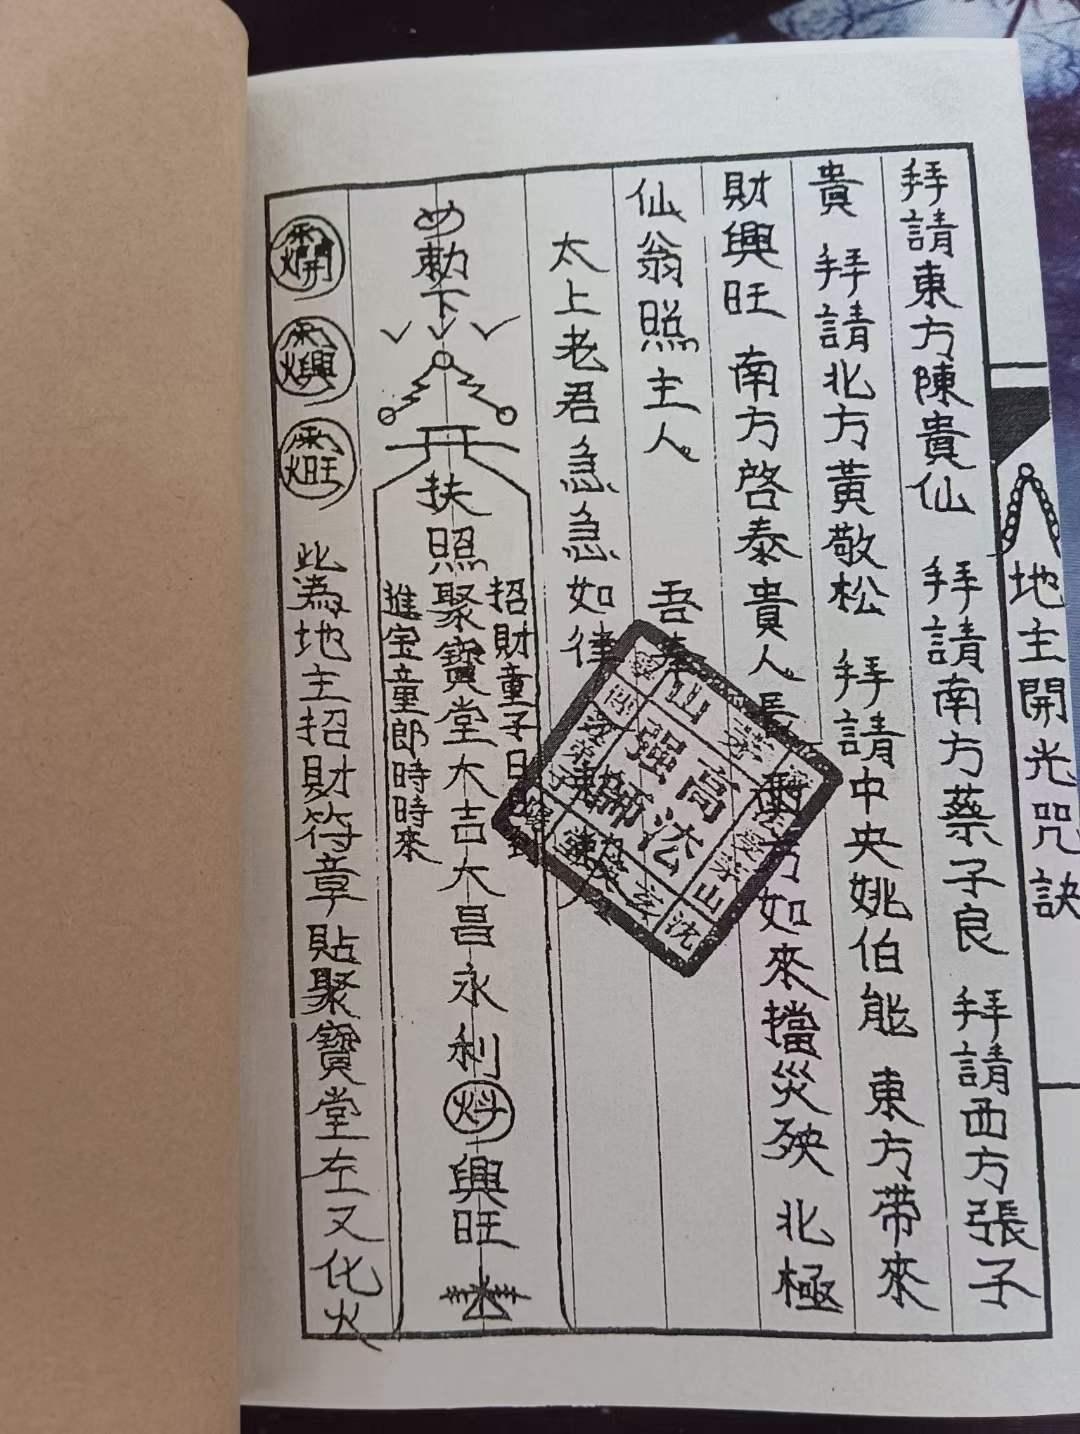 地主開光咒訣
拜請東方陳貴仙 拜請南方蔡子良 拜請西方張子
貴 拜請北方黃敬松 拜請中央姚伯能 東方帶來
財興旺 南方啓泰貴人長 方如來擋災殃 北極
仙翁照主人 吾奉
太上老君急急如律
敕下
扶照聚寶堂大吉大昌永利 興旺
招財童子日
進宝童郎時時來
開
興
旺
此為地主招財符章貼聚寶堂左又化火
高法
强師